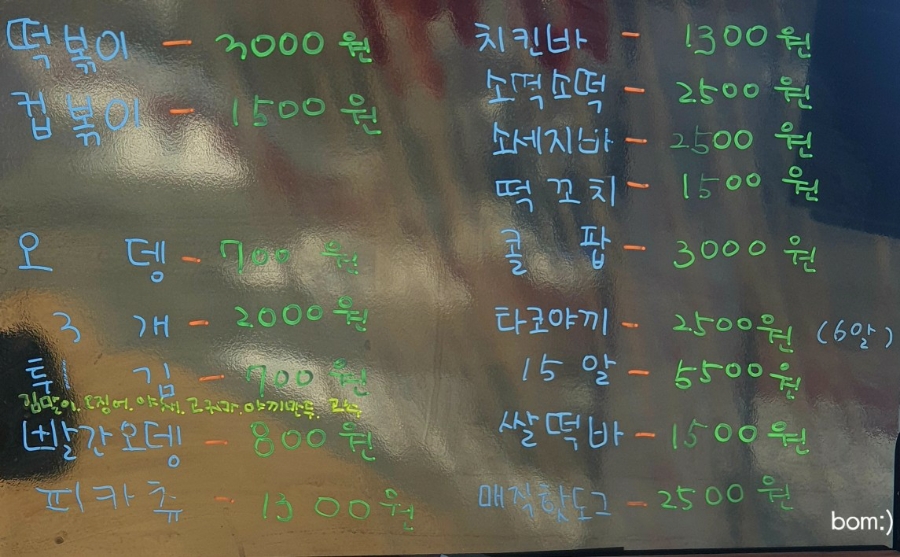 떡볶이 - 3000원
컵볶이 - 1500원
오 뎅 - 700원
3 개 - 2000원
튀 김 - 700원
김말이. 오징어. 야채. 고구마. 야끼만두. 고추
빨간오뎅 - 800원
피카츄 - 1300원
치킨바 - 1300원
소떡소떡 - 2500원
소세지바 - 2500원
떡꼬치 - 1500원
콜 팝 - 3000원
타코야끼 - 2500원 (6알)
15 알 - 5500원
쌀떡바 - 1500원
매직핫도그 - 2500원
bom:)